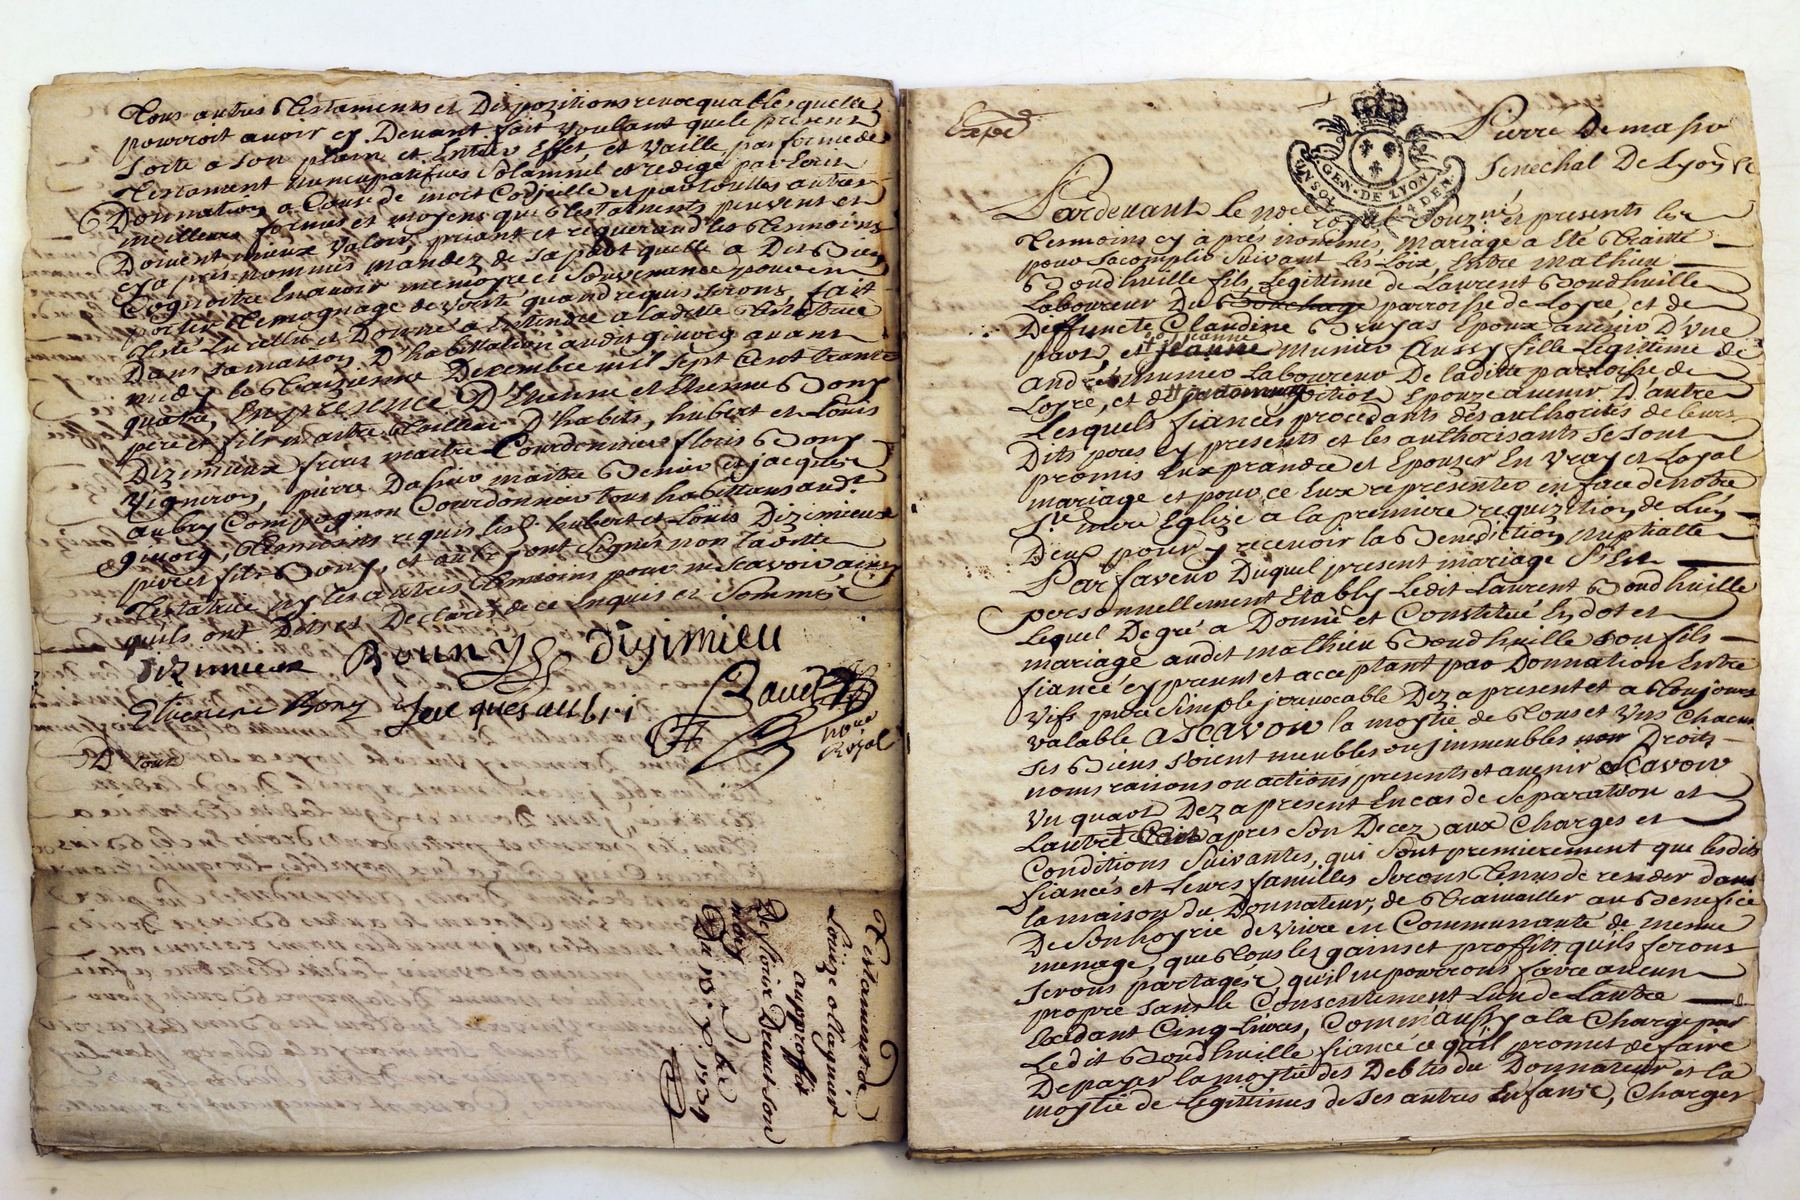 Tous autres Testaments et Dispozitions revocquables quelle
pourroit avoir cy Devant fait voulant quele present
sorte a son plain et Entier Effet et vaille par forme de
Testament nuncupatif Solamnel et redigé par Ecrit
Donnation a Cause de mort Codicille et par touttes autres
meilleurs formes et moyens que Testaments peuvent et
Doivent mieux valoir, priant et requerand les Temoins
cy apres nommés mandez de sa part quelle a Dit Bien
Cognoitre En avoir memoire et Souvenance pour en
porter Temognage de verité quand requis seront fait
Testé Lu rellu et Donné a Entendre a ladite Testatrice
Dans sa maison D'habittation audit givorg avant
midy le Traizieme Decembre mil sept Cent trante
quatre, En presence D'Etienne et Etienne Bony
pere et fils maitre Tailleur D'habits, hubert et Louis
Dizimieux freres maitre Courdonniers flouis Bony
vigneron, pierre Dasier maitre Benier et jacques
aubry Compagnon Courdonnier tous habittans aud.t
givorg, Temoins requis lesd. hubert et Louis Dizimieux
pierre et fils Bony, et aubry ont Signés non laditte
Testatrice ny les autres Temoins pour ne scavoir ainsy
quils ont Dit et Declaré de ce Enquis et Sommés
Dizimieux Bouny Dizimieu
Etienne Bony Jacques aubri
no.re Royal
D Louis
Testament de
Louize allagnier
au proffit
De sieur Benut son
mary
Du 13. X.bre 1734
GEN·DE LYON
Pierre De masso
Senechal De Lyon
Pardevant le no.re
royal Souz.né et presents les
Temoins cy aprés nommés, mariage a Eté Traitté
pour sacomplir Suivant les Loix, Entre mathieu
Bondhuille fils Legittime de Laurent Bondhuille
Laboureur Du parroisse de Loyre, et de
Deffuncte Claudine Bruyas Epoux avenir D'une
part, et jeanne munier aussy fille Legittime de
andré munier Laboureur De ladite parroisse de
Loyre, et de Epouze avenir D'autre
Lesquels fiancés procedants des authorités de leurs
Dits peres cy presents et les authorisants se sont
promis Eux prandre et Epouzer En vray et Loyal
mariage et pour ce Eux representer en face de notre
S.te mere Eglize a la premiere requizition de Lun
Deux pour y recevoir la Benediction nuptialle
Par faveur Duquel present mariage S'Est
personnellement Etably Ledit Laurent Bondhuille
Lequel De gré a Donné et Constitué En dot et
mariage audit mathieu Bondhuille son fils
fiancé cy present et acceptant par Donnation Entre
vifs pure Simple jrrevocable Dez a present et a Toujours
valable ascavoir la moytié de Tous et Uns Chacuns
ses Biens soient meubles ou jmmeubles Droits
noms raisons ou actions presents et avenir ascavoir
Un quart Dez a present En cas de Separation et
Lautre apres Son Decez aux Charges et
Conditions Suivantes, qui sont premierement que lesdits
fiancés et Leurs familles Seront Tenus de resider dans
la maison du Donnateur, de Travailler au Benefice
De Son hoyrie de vivre en Communauté de mesme
menage, que Tous les gains et proffits quils feront
seront partagés, quil ne pourront faire aucun
propre sans le Consentement Lun de Lautre
Exedant Cinq livres, Comm'aussy a la Charge par
Ledit Bondhuille fiancé ce qu'il promet de faire
De payer la moytié des Debtes du Donnateur et la
moytié de Legittimes de ses autres Enfants, Charges